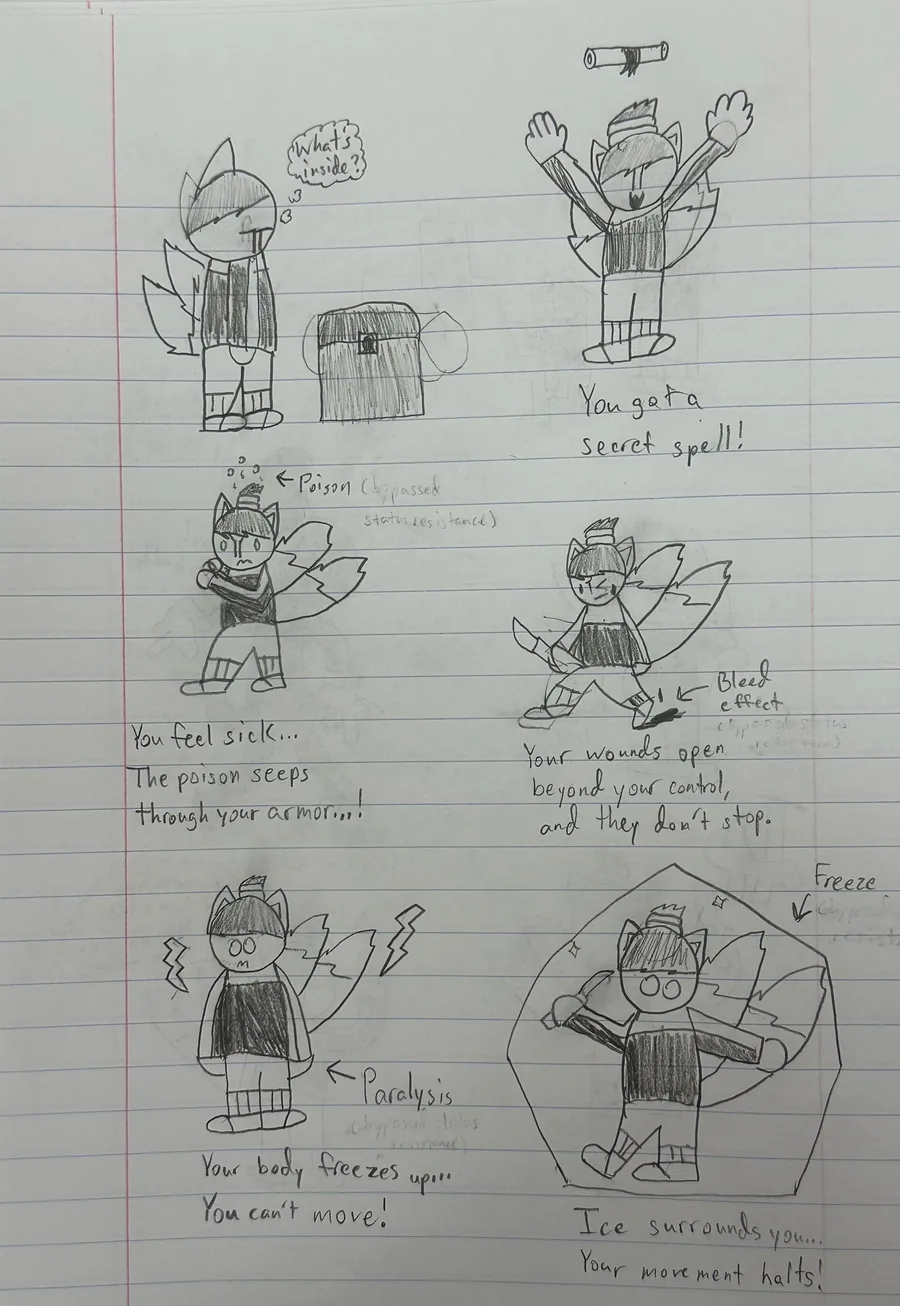 What's
inside?
You got a
secret spell!
← Poison (bypassed
status resistance)
You feel sick...
The poison seeps
through your armor...!
Bleed
effect
(bypassed status
Your wounds open
beyond your control,
and they don't stop.
Paralysis
(bypassed status
resistance)
Your body freezes up...
You can't move!
Freeze
(bypass
Ice surrounds you...
Your movement halts!